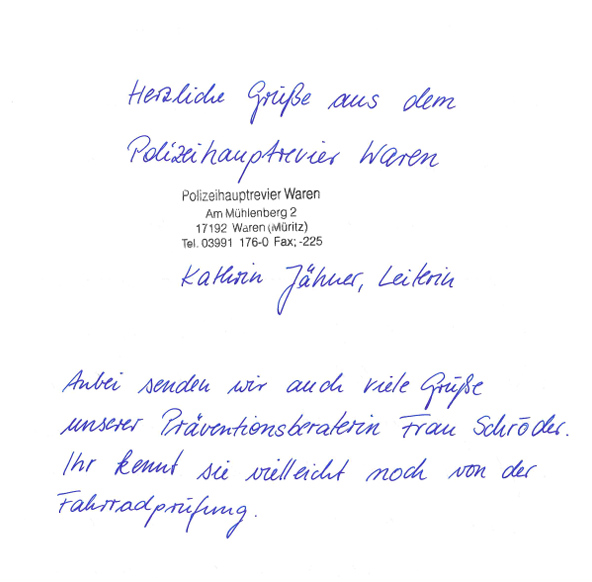 Herzliche Grüße aus dem
Polizeihauptrevier Waren
Polizeihauptrevier Waren
Am Mühlenberg 2
17192 Waren (Müritz)
Tel. 03991 176-0 Fax; -225
Kathrin Jähner, Leiterin
Anbei senden wir auch viele Grüße
unserer Präventionsberaterin Frau Schröder.
Ihr kennt sie vielleicht noch von der
Fahrradprüfung.